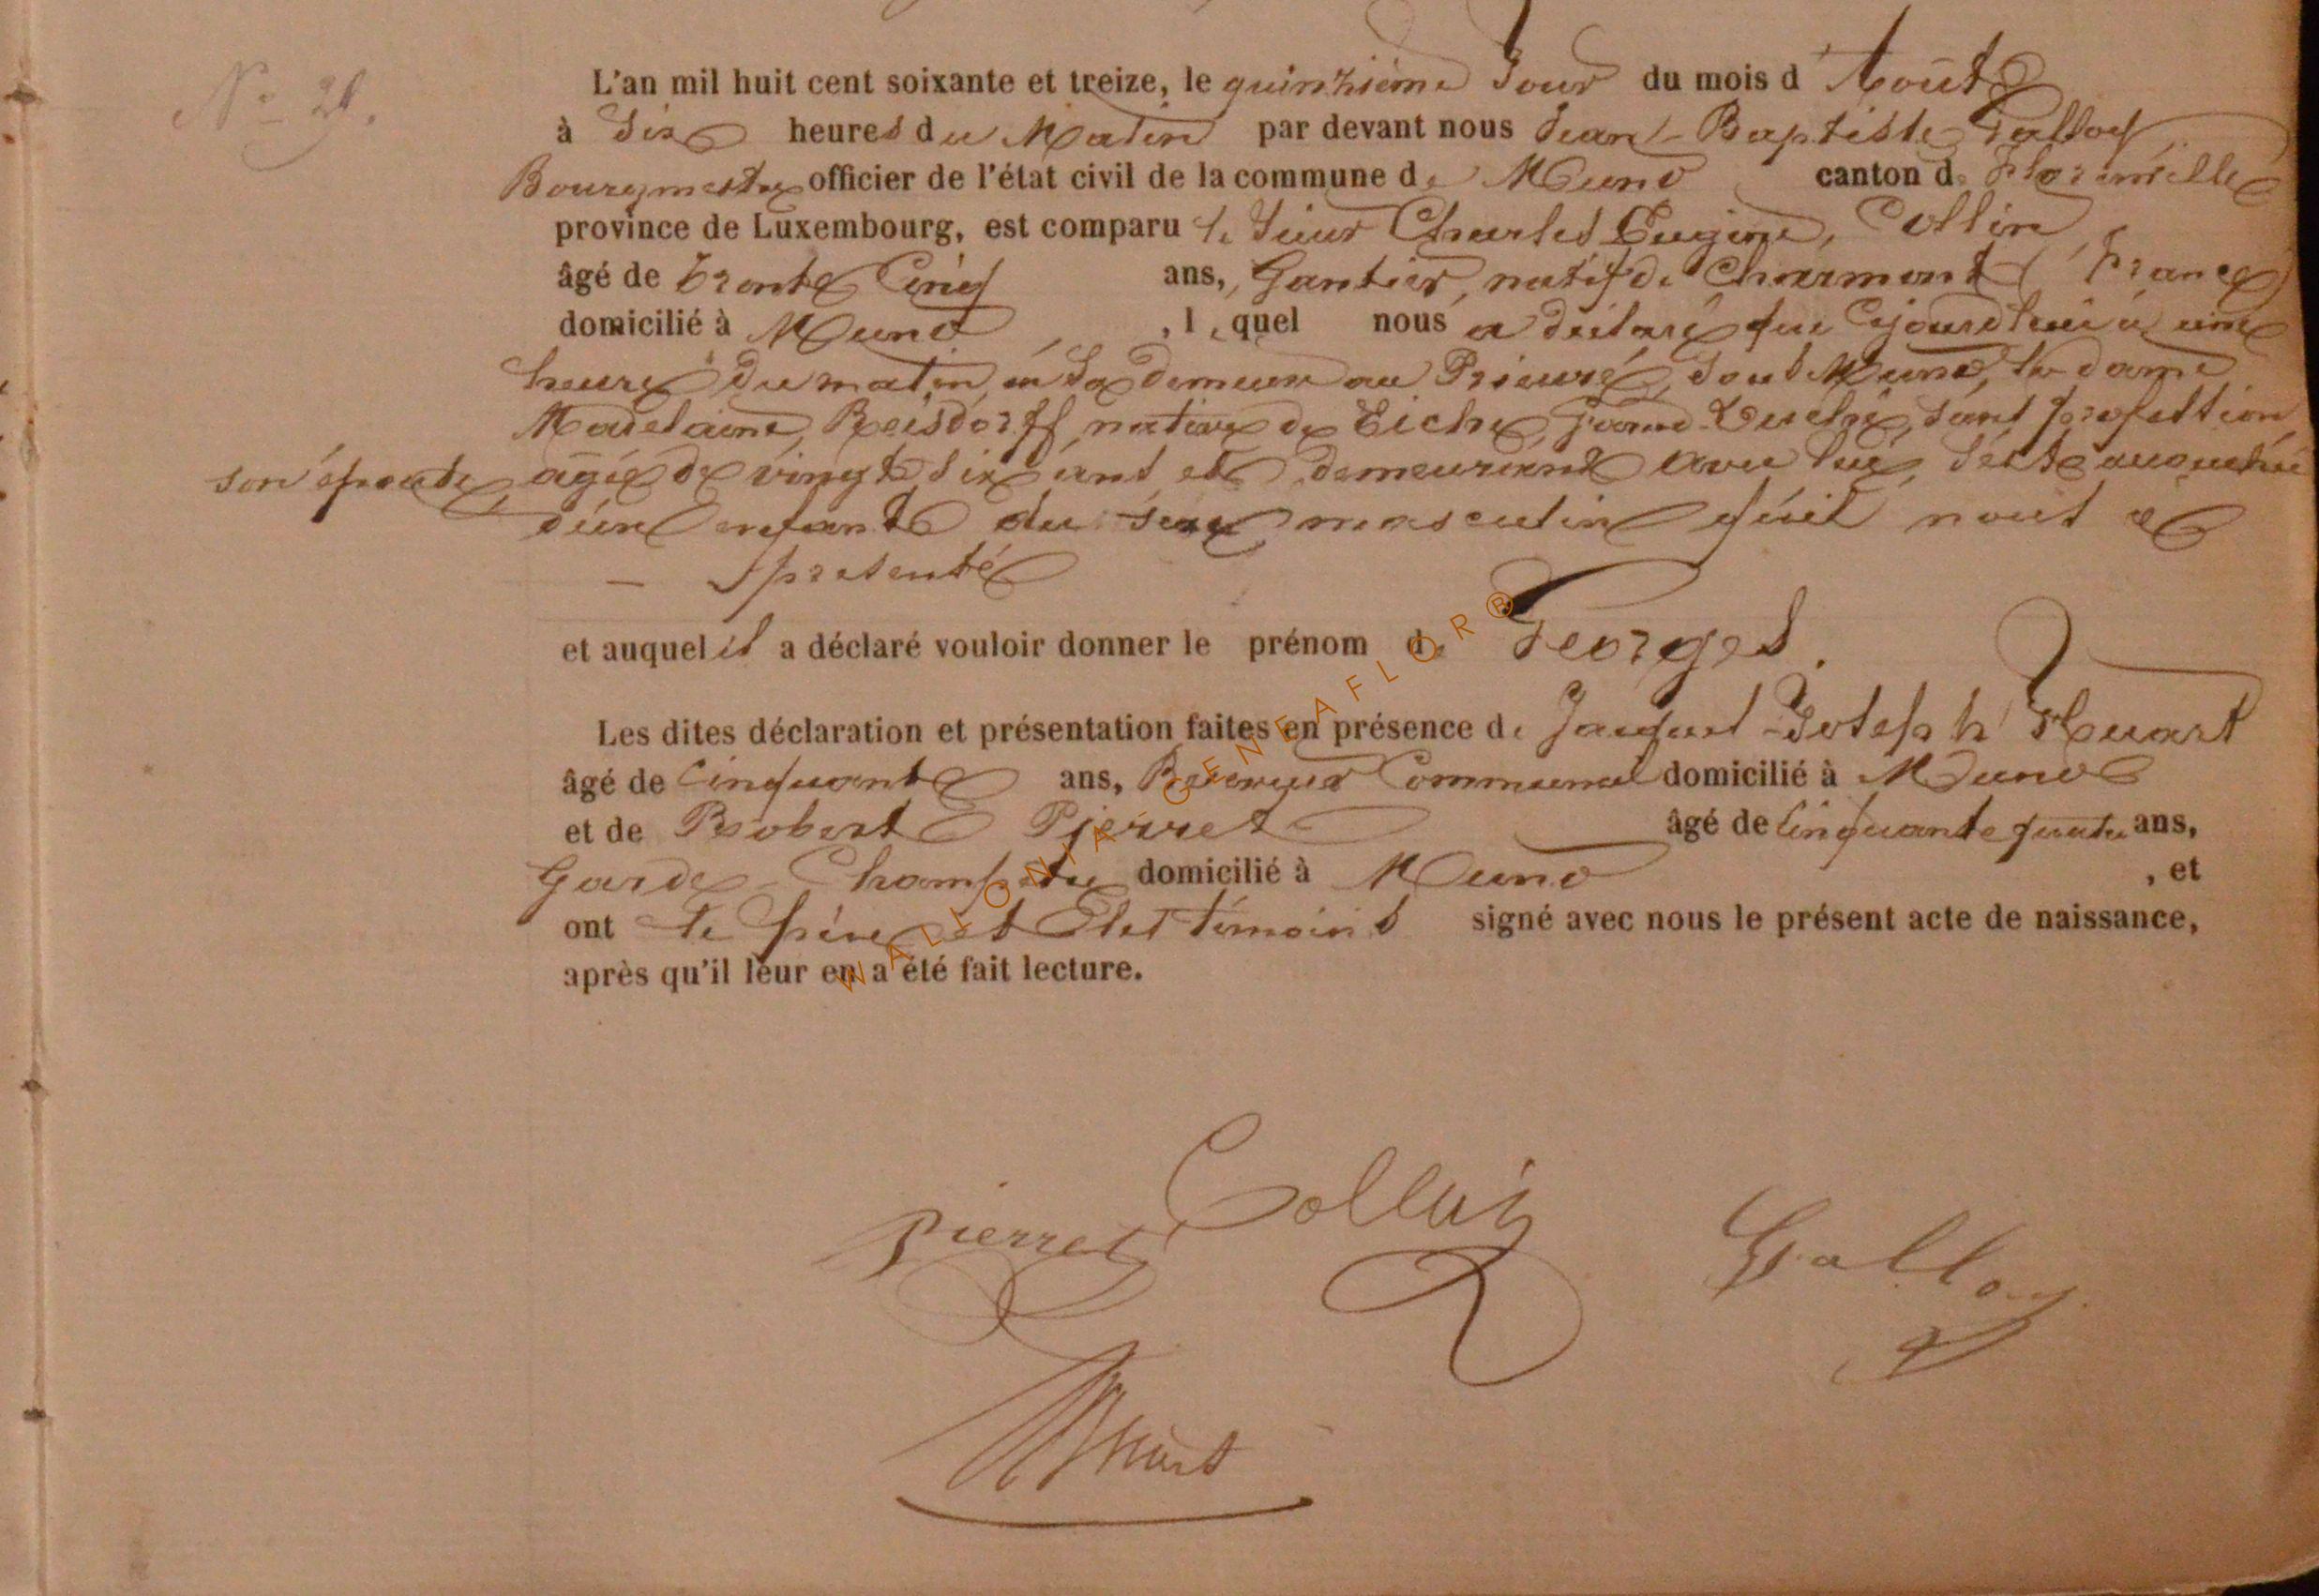 N° 21.
L'an mil huit cent soixante et treize, le quinzième Jour du mois d'Août
à Six heures du Matin par devant nous Jean-Baptiste Galloy
Bourgmestre officier de l'état civil de la commune de Muno canton de Florenville
province de Luxembourg, est comparu le Sieur Charles Eugène, Collin
âgé de Trente Cinq ans, Gantier, natif de Charmont (France)
domicilié à Muno, lequel nous a déclaré que Cejourd'hui à une
heure du matin, en sa demeure au Prieuré, sous Muno, la dame
Madelaine, Reisdorff, native de Eiche, Grand-Duché, sans profession
son épouse, agée de vingt six ans et demeurant avec lui, s'est accouchée
d'un Enfant du sexe masculin qu'il nous a
— présenté
et auquel il a déclaré vouloir donner le prénom de Georges.
Les dites déclaration et présentation faites en présence de Jacques-Joseph Huart
âgé de Cinquante ans, Receveur Communal domicilié à Muno
et de Robert Pierret âgé de Cinquante quatre ans,
Garde-Champetre domicilié à Muno, et
ont le père et les témoins signé avec nous le présent acte de naissance,
après qu'il leur en a été fait lecture.
WALLONIA-GENEAFLOR®
Pierret Collin Galloy
Huart